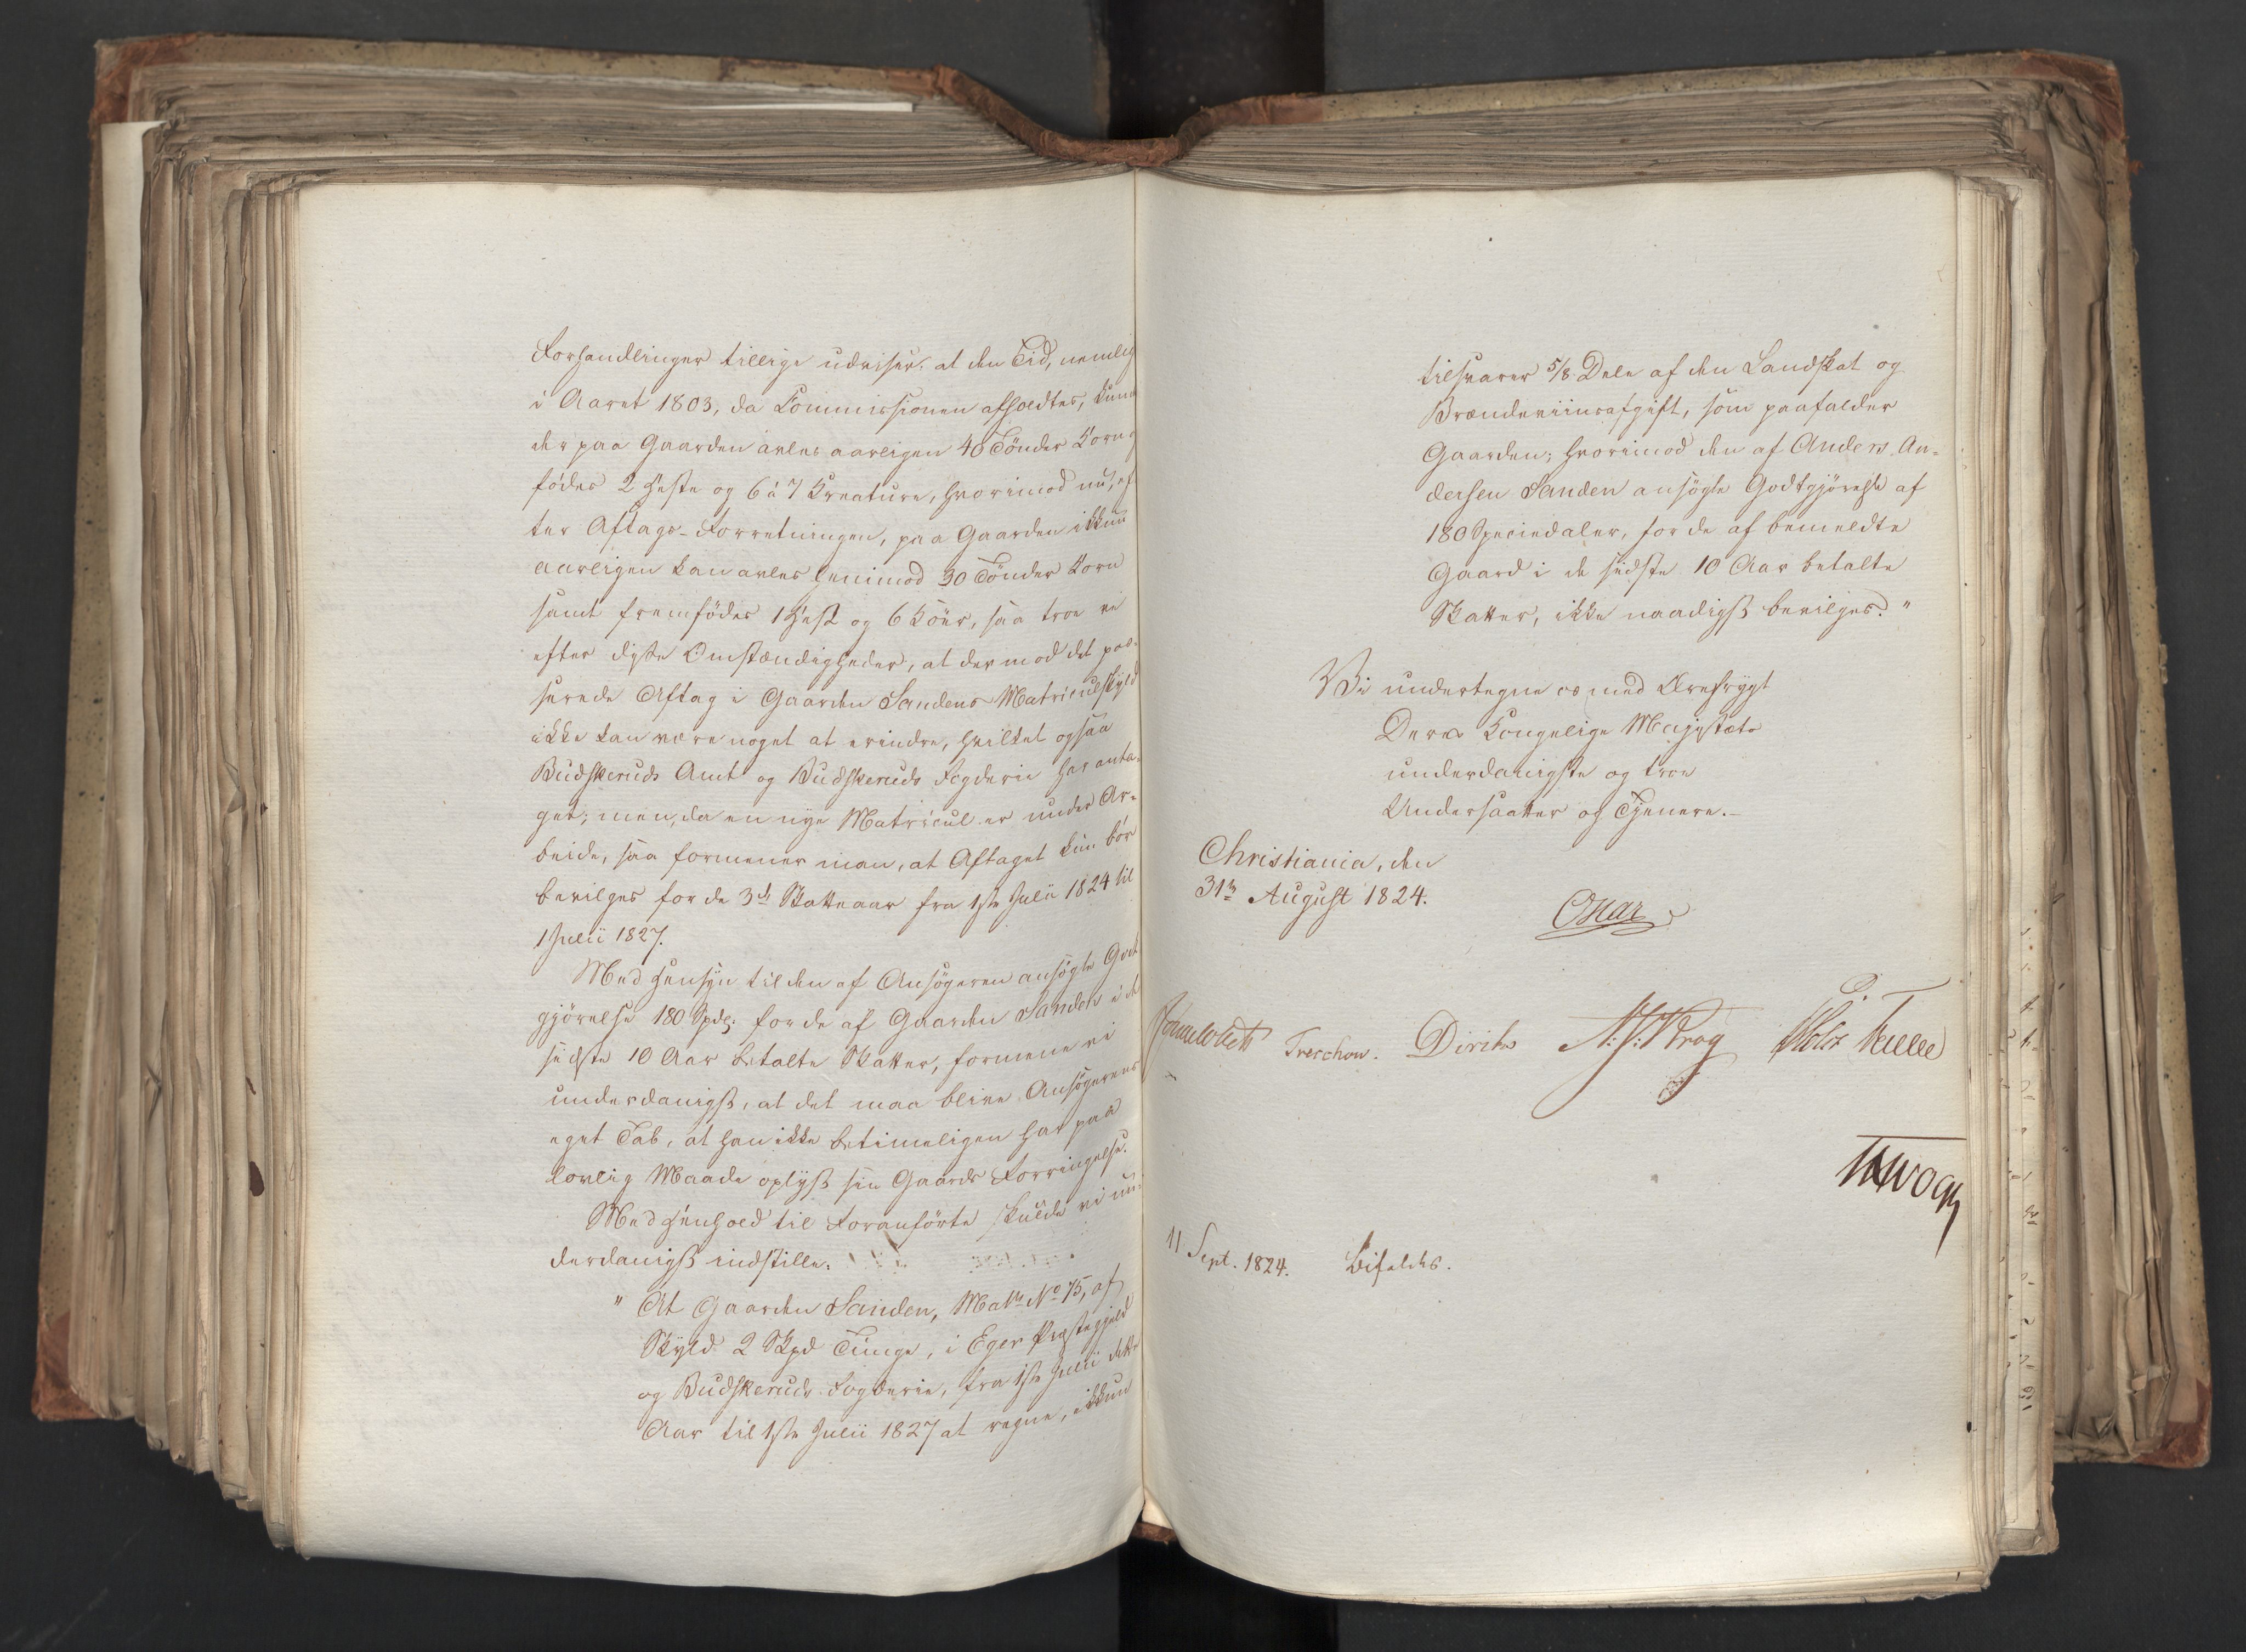 Forhandlinger tillige udviser: at den Tid, nemlig
i Aaret 1803, da Commissionen afholdtes, kund
der paa Gaarden avles aarligen 40 Tönder Korn
födes 2 Heste og 6 à 7 Kreature, hvorimod nu, ef
ter Aftags-Forretningen, paa Gaarden ikkun
aarligen kan avles henimod 30 Tönder Korn
samt fremfödes 1 Hest og 6 Köer, saa troe vi
efter disse Omstændigheder, at der mod det pas-
serede Aftag i Gaarden Sandens Matriculskyld
ikke kan være noget at erindre, hvilket ogsaa
Budskeruds Amt og Budskeruds Fogderie har anta-
get; men, da en nye Matricul er under Ar-
beide, saa formener man, at Aftaget kun bör
bevilges for de 3de Skatteaar fra 1ste Julii 1824 til
1 Julii 1827.
Med Hensyn til den af Ansögeren ansögte Godt
gjörelse 180 Spdlr: for de af Gaarden Sanden i de
sidste 10 Aar betalte Skatter, formene vi
underdanigst, at det maa blive Ansögerens
eget Tab, at han ikke betimeligen har paa
lovlig Maade oplyst sin Gaards Forringelse.
Med Henhold til Foranförte skulde vi un-
derdanigst indstille:
" At Gaarden Sanden, Matr. No 75, af
Skyld 2 Skpd Tunge, i Eger Præstegjeld
og Budskeruds Fogderie, fra 1ste Julii dette
Aar til 1ste Julii 1827 at regne, ikkun
tilsvarer 5/8 Dele af den Landskat og
Brændeviinsafgift, som paafalder
Gaarden; hvorimod den af Anders An-
dersen Sanden ansögte Godtgjörelse af
180 Speciedaler, for de af bemeldte
Gaard i de sidste 10 Aar betalte
Skatter, ikke naadigst bevilges."
Vi undertegne os med Ærefrygt
Deres Kongelige Majestæts
underdanigste og troe
Undersaatter og Tjenere.-
Christiania, den
31te August 1824.
Oskar
Sommerhielm Treschow. Diriks N. J. Krog Holst
JHVogt
11 Sept. 1824. Bifaldes.